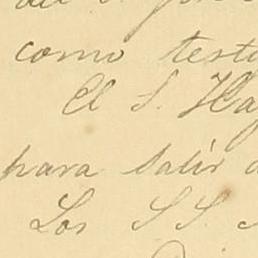 como testi
El S. Ha
para salir d
Los SS.